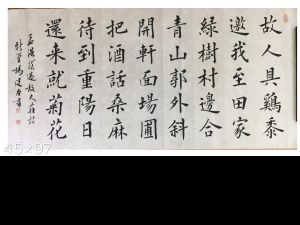 故人具鷄黍
邀我至田家
綠樹村邊合
青山郭外斜
開軒面場圃
把酒話桑麻
待到重陽日
還来就菊花
孟浩然過故人莊詩
45×97